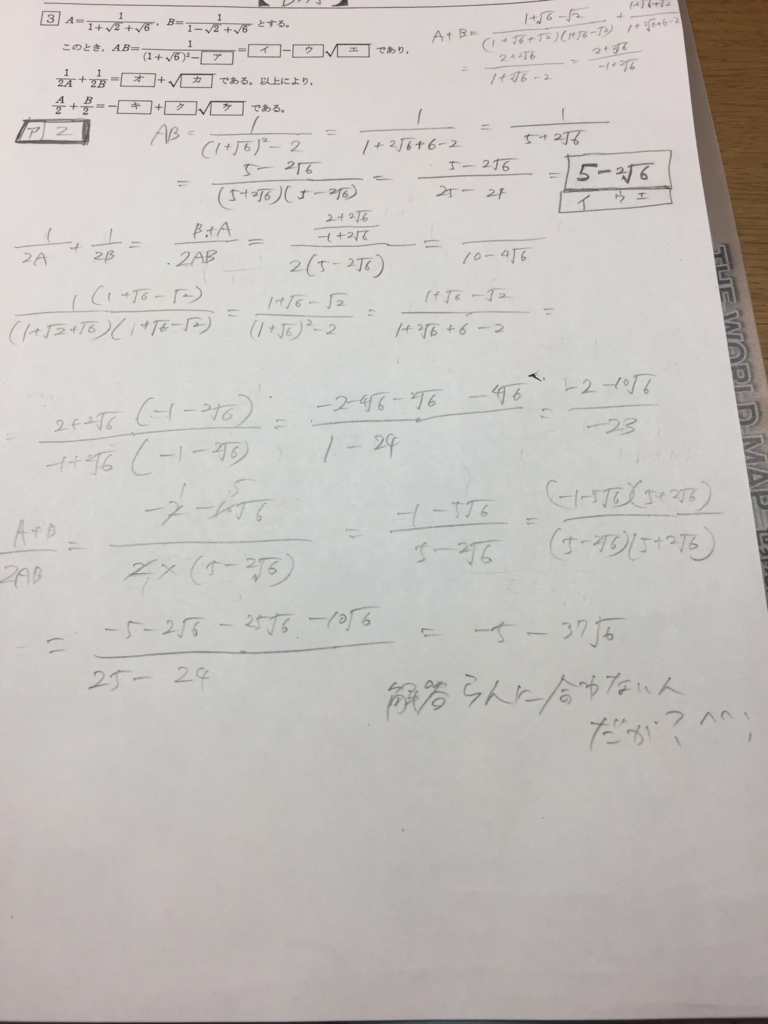 3 A=1/(1+√2+√6), B=1/(1-√2+√6) とする。
このとき, AB=1/((1+√6)²-ア)=イ-ウ√エ であり,
1/2A+1/2B=オ+√カ である。以上により,
A/2+B/2=-キ+ク√ケ である。
A+B=(1+√6-√2)/((1+√6+√2)(1+√6-√2))+
=(2+2√6)/(1+2√6-2)=(2+2√6)/(-1+2√6)
ア 2
AB=1/((1+√6)²-2)=1/(1+2√6+6-2)=1/(5+2√6)
=(5-2√6)/((5+2√6)(5-2√6))=(5-2√6)/(25-24)=5-2√6
イ ウ エ
1/2A+1/2B=(B+A)/2AB=((2+2√6)/(-1+2√6))/(2(5-2√6))=/(10-4√6)
1(1+√6-√2)/((1+√2+√6)(1+√6-√2))=(1+√6-√2)/((1+√6)²-2)=(1+√6-√2)/(1+2√6+6-2)=
=2+2√6(-1-2√6)/-1+2√6(-1-2√6)=(-2-4√6-2√6-4√6)/(1-24)=(-2-10√6)/-23
(A+B)/2AB=/(2×(5-2√6))=(-1-5√6)/(5-2√6)=(-1-5√6)(5+2√6)/((5-2√6)(5+2√6))
=(-5-2√6-25√6-10√6)/(25-24)=-5-37√6
解答らんに合わないん
だが？^^;
THE WORLD MAP